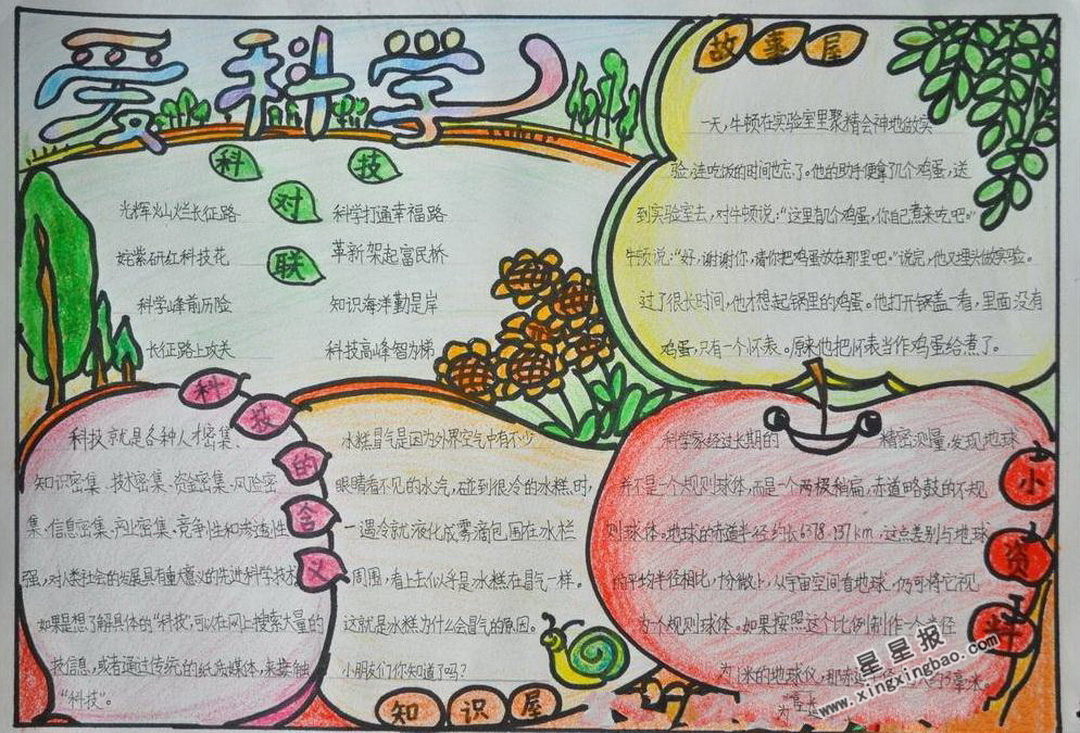 爱科学
科技对联
光辉灿烂长征路
科学打通幸福路
姹紫研红科技花
革新架起富民桥
科学峰前历险
知识海洋勤是岸
长征路上攻关
科技高峰智为梯
故事屋
一天,牛顿在实验室里聚精会神地做实
验,连吃饭的时间也忘了。他的助手便拿了几个鸡蛋,送
到实验室去,对牛顿说:“这里有几个鸡蛋,你自己煮来吃吧。”
牛顿说:“好,谢谢你,请你把鸡蛋放在那里吧。”说完,他又埋头做实验。
过了很长时间,他才想起锅里的鸡蛋。他打开锅盖一看,里面没有
鸡蛋,只有一个怀表。原来他把怀表当作鸡蛋给煮了。
科技的含义
科技就是各种人才密集、
知识密集、技术密集、资金密集、风险密
集、信息密集、产业密集、竞争性和渗透性
强,对人类社会的发展具有重大意义的先进科学技术
如果是想了解具体的“科技”,可以在网上搜索大量的
技信息,或者通过传统的纸质媒体,来接触
“科技”。
冰糕冒气是因为外界空气中有不少
眼睛看不见的水汽,碰到很冷的冰糕时,
一遇冷就液化成雾滴包围在冰糕
周围,看上去似乎是冰糕在冒气一样。
这就是冰糕为什么会冒气的原因。
小朋友们你知道了吗?
知识屋
小资料
科学家经过长期的精密测量,发现地球
并不是一个规则球体,而是一个两极稍扁,赤道略鼓的不规
则球体。地球的赤道半径约长6378.137km,这点差别与地球
的平均半径相比,十分微小,从宇宙空间看地球,仍可将它视
为个规则球体。如果按照这个比例制作一个半径
为1米的地球仪,那赤道半径
3毫米。
星星报
www.xingxingbao.com